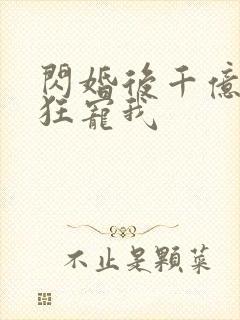 閃婚後千億
狂寵我
不止是顆菜